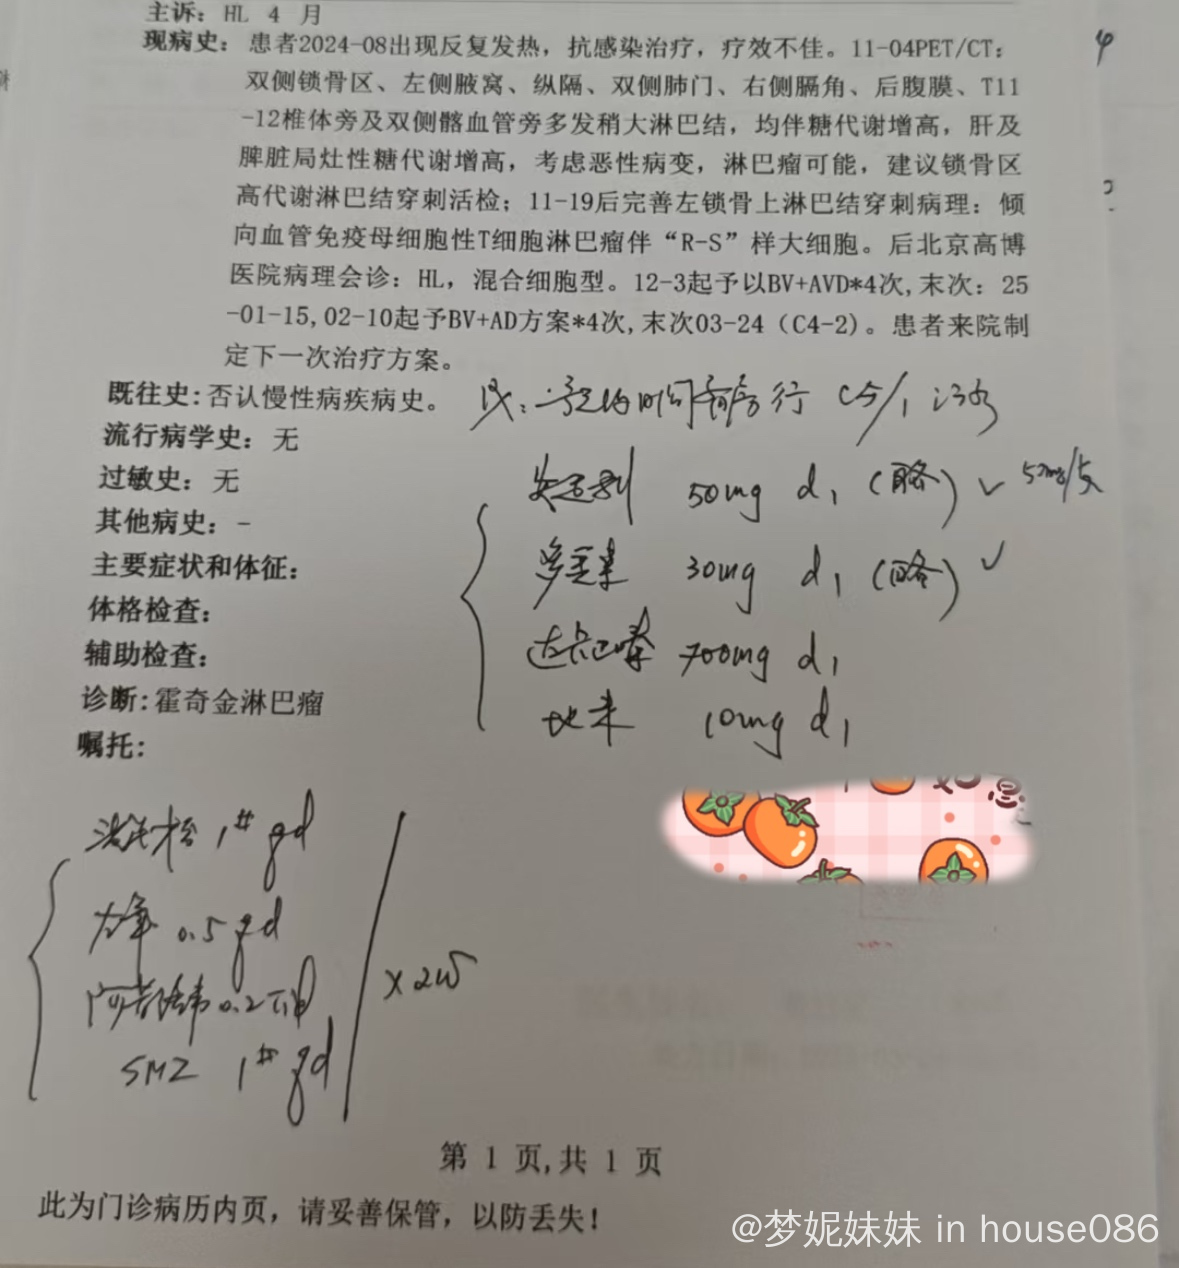 主诉：HL 4 月
现病史：患者2024-08出现反复发热，抗感染治疗，疗效不佳。11-04PET/CT：
双侧锁骨区、左侧腋窝、纵隔、双侧肺门、右侧膈角、后腹膜、T11
-12椎体旁及双侧髂血管旁多发稍大淋巴结，均伴糖代谢增高，肝及
脾脏局灶性糖代谢增高，考虑恶性病变，淋巴瘤可能，建议锁骨区
高代谢淋巴结穿刺活检；11-19后完善左锁骨上淋巴结穿刺病理：倾
向血管免疫母细胞性T细胞淋巴瘤伴“R-S”样大细胞。后北京高博
医院病理会诊：HL，混合细胞型。12-3起予以BV+AVD*4次,末次：25
-01-15,02-10起予BV+AD方案*4次,末次03-24（C4-2）。患者来院制
定下一次治疗方案。
既往史：否认慢性病疾病史。
流行病学史：无
过敏史：无
其他病史：-
主要症状和体征：
体格检查：
辅助检查：
诊断：霍奇金淋巴瘤
嘱托：
安适利 50mg d1（略）✓
多美素 30mg d1（略）✓
达卡巴嗪 700mg d1
地米 10mg d1
1# qd
0.5 qd
阿昔洛韦 0.2 tid
SMZ 1# qd
×2W
第 1 页,共 1 页
此为门诊病历内页，请妥善保管，以防丢失！
@梦妮妹妹 in house086